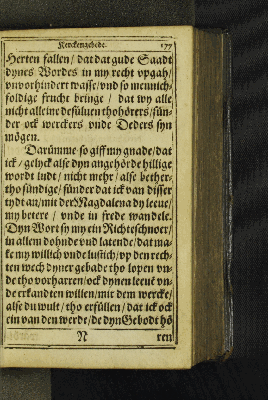 Kerckengebede. 177
Herten fallen / dat dat gude Saadt
dynes Wordes in my recht vpgah /
vnvorhindert wasse / vnd so mennich-
foldige frucht bringe / dat wy alle
nicht alleine desüluen thohörers / sün-
der ock werckers vnde Deders syn
mögen.
Darümme so giff my gnade / dat
ick / gelyck alse dyn angehörde hillige
wordt ludt / nicht mehr / alse bether-
tho sündige / sünder dat ick van disser
tydt an / mit der Magdalena dy leeue /
my betere / vnde in frede wandele.
Dyn Wort sy my ein Richteschnoer /
in allem dohnde vnd latende / dat ma-
ke my willich vnde lustich / vp den rech-
ten wech dyner gebade tho lopen vn-
de tho vorharren / ock dynen leeue vn-
de erkandten willen / mit dem wercke /
alse du wult / tho erfüllen / dat ick ock
ein van den werde / de dyn Gebodt hö
N ren